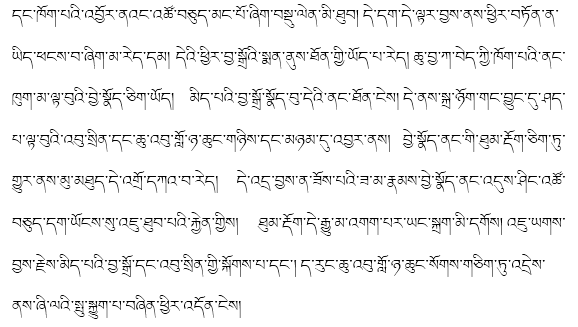 དང་ཁོག་པའི་འབྱོར་ནའང་འཚོ་བཅུད་མང་པོ་ཞིག་བསྡུ་ལེན་མི་ཐུབ། དེ་དག་དེ་ལྟར་བྱས་ནས་ཕྱིར་བཏོན་ན་
ཡིད་ཕངས་བ་ཞིག་མ་རེད་དམ། དེའི་ཕྱིར་བྱ་སྒྲོའི་སྨན་ནུས་ཐོན་གྱི་ཡོད་པ་རེད། ཆུ་བྱ་ཀ་བེད་ཀྱི་ཁོག་པའི་ནང་
ཁུག་མ་ལྟ་བུའི་བྱེ་སྣོད་ཅིག་ཡོད། མིད་པའི་བྱ་སྒྲོ་སྣོད་བུ་དེའི་ནང་ཐོན་ངེས། དེ་ནས་སྐྲ་ཉོག་གང་བྱུང་དུ་ཤད་
པ་ལྟ་བུའི་འབུ་སྲིན་དང་ཆུ་འབུ་གློ་ཉ་ཆུང་གཉིས་དང་མཉམ་དུ་འབྱར་ནས། བྱེ་སྣོད་ནང་གི་ཐུམ་རྡོག་ཅིག་ཏུ་
གྱུར་ནས་མུ་མཐུད་དེ་འགྲོ་དཀའ་བ་རེད། དེ་འདྲ་བྱས་ན་ཟོས་པའི་ཟ་མ་རྣམས་བྱེ་སྣོད་ནང་འདུས་ཤིང་འཚོ་
བཅུད་དག་ཡོངས་སུ་འཇུ་ཐུབ་པའི་རྐྱེན་གྱིས། ཐུམ་རྡོག་དེ་རྒྱུ་མ་འགག་པར་ཡང་སྐྲག་མི་དགོས། འཇུ་ཡགས་
བྱས་རྗེས་མིད་པའི་བྱ་སྒྲོ་དང་འབུ་སྲིན་གྱི་སྐོགས་པ་དང་། ད་རུང་ཆུ་འབུ་གློ་ཉ་ཆུང་སོགས་གཅིག་ཏུ་འདྲེས་
ནས་ཞི་ལའི་སྤུ་སྐྱུག་པ་བཞིན་ཕྱིར་འདོན་ངེས།